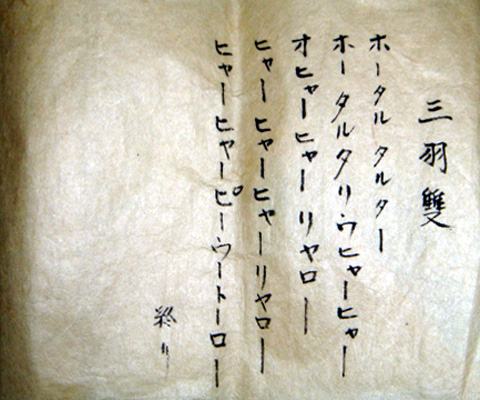 三羽雙
ホータル タルター
ホータルタリウヒャーヒャー
オヒャーヒャーリャロー
ヒャーヒャーヒャーリャロー
ヒャーヒャーピーウートーロー
終り